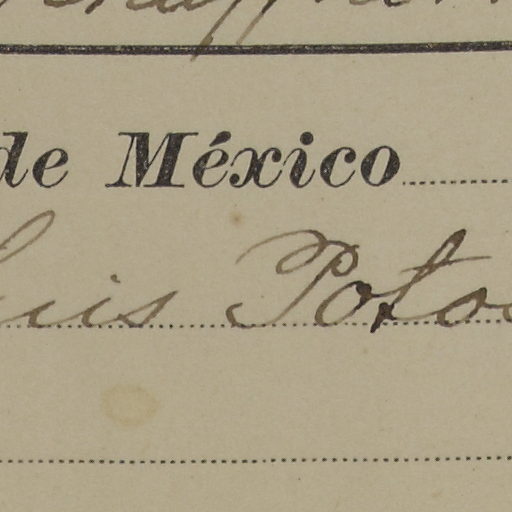 de México
Luis Poto